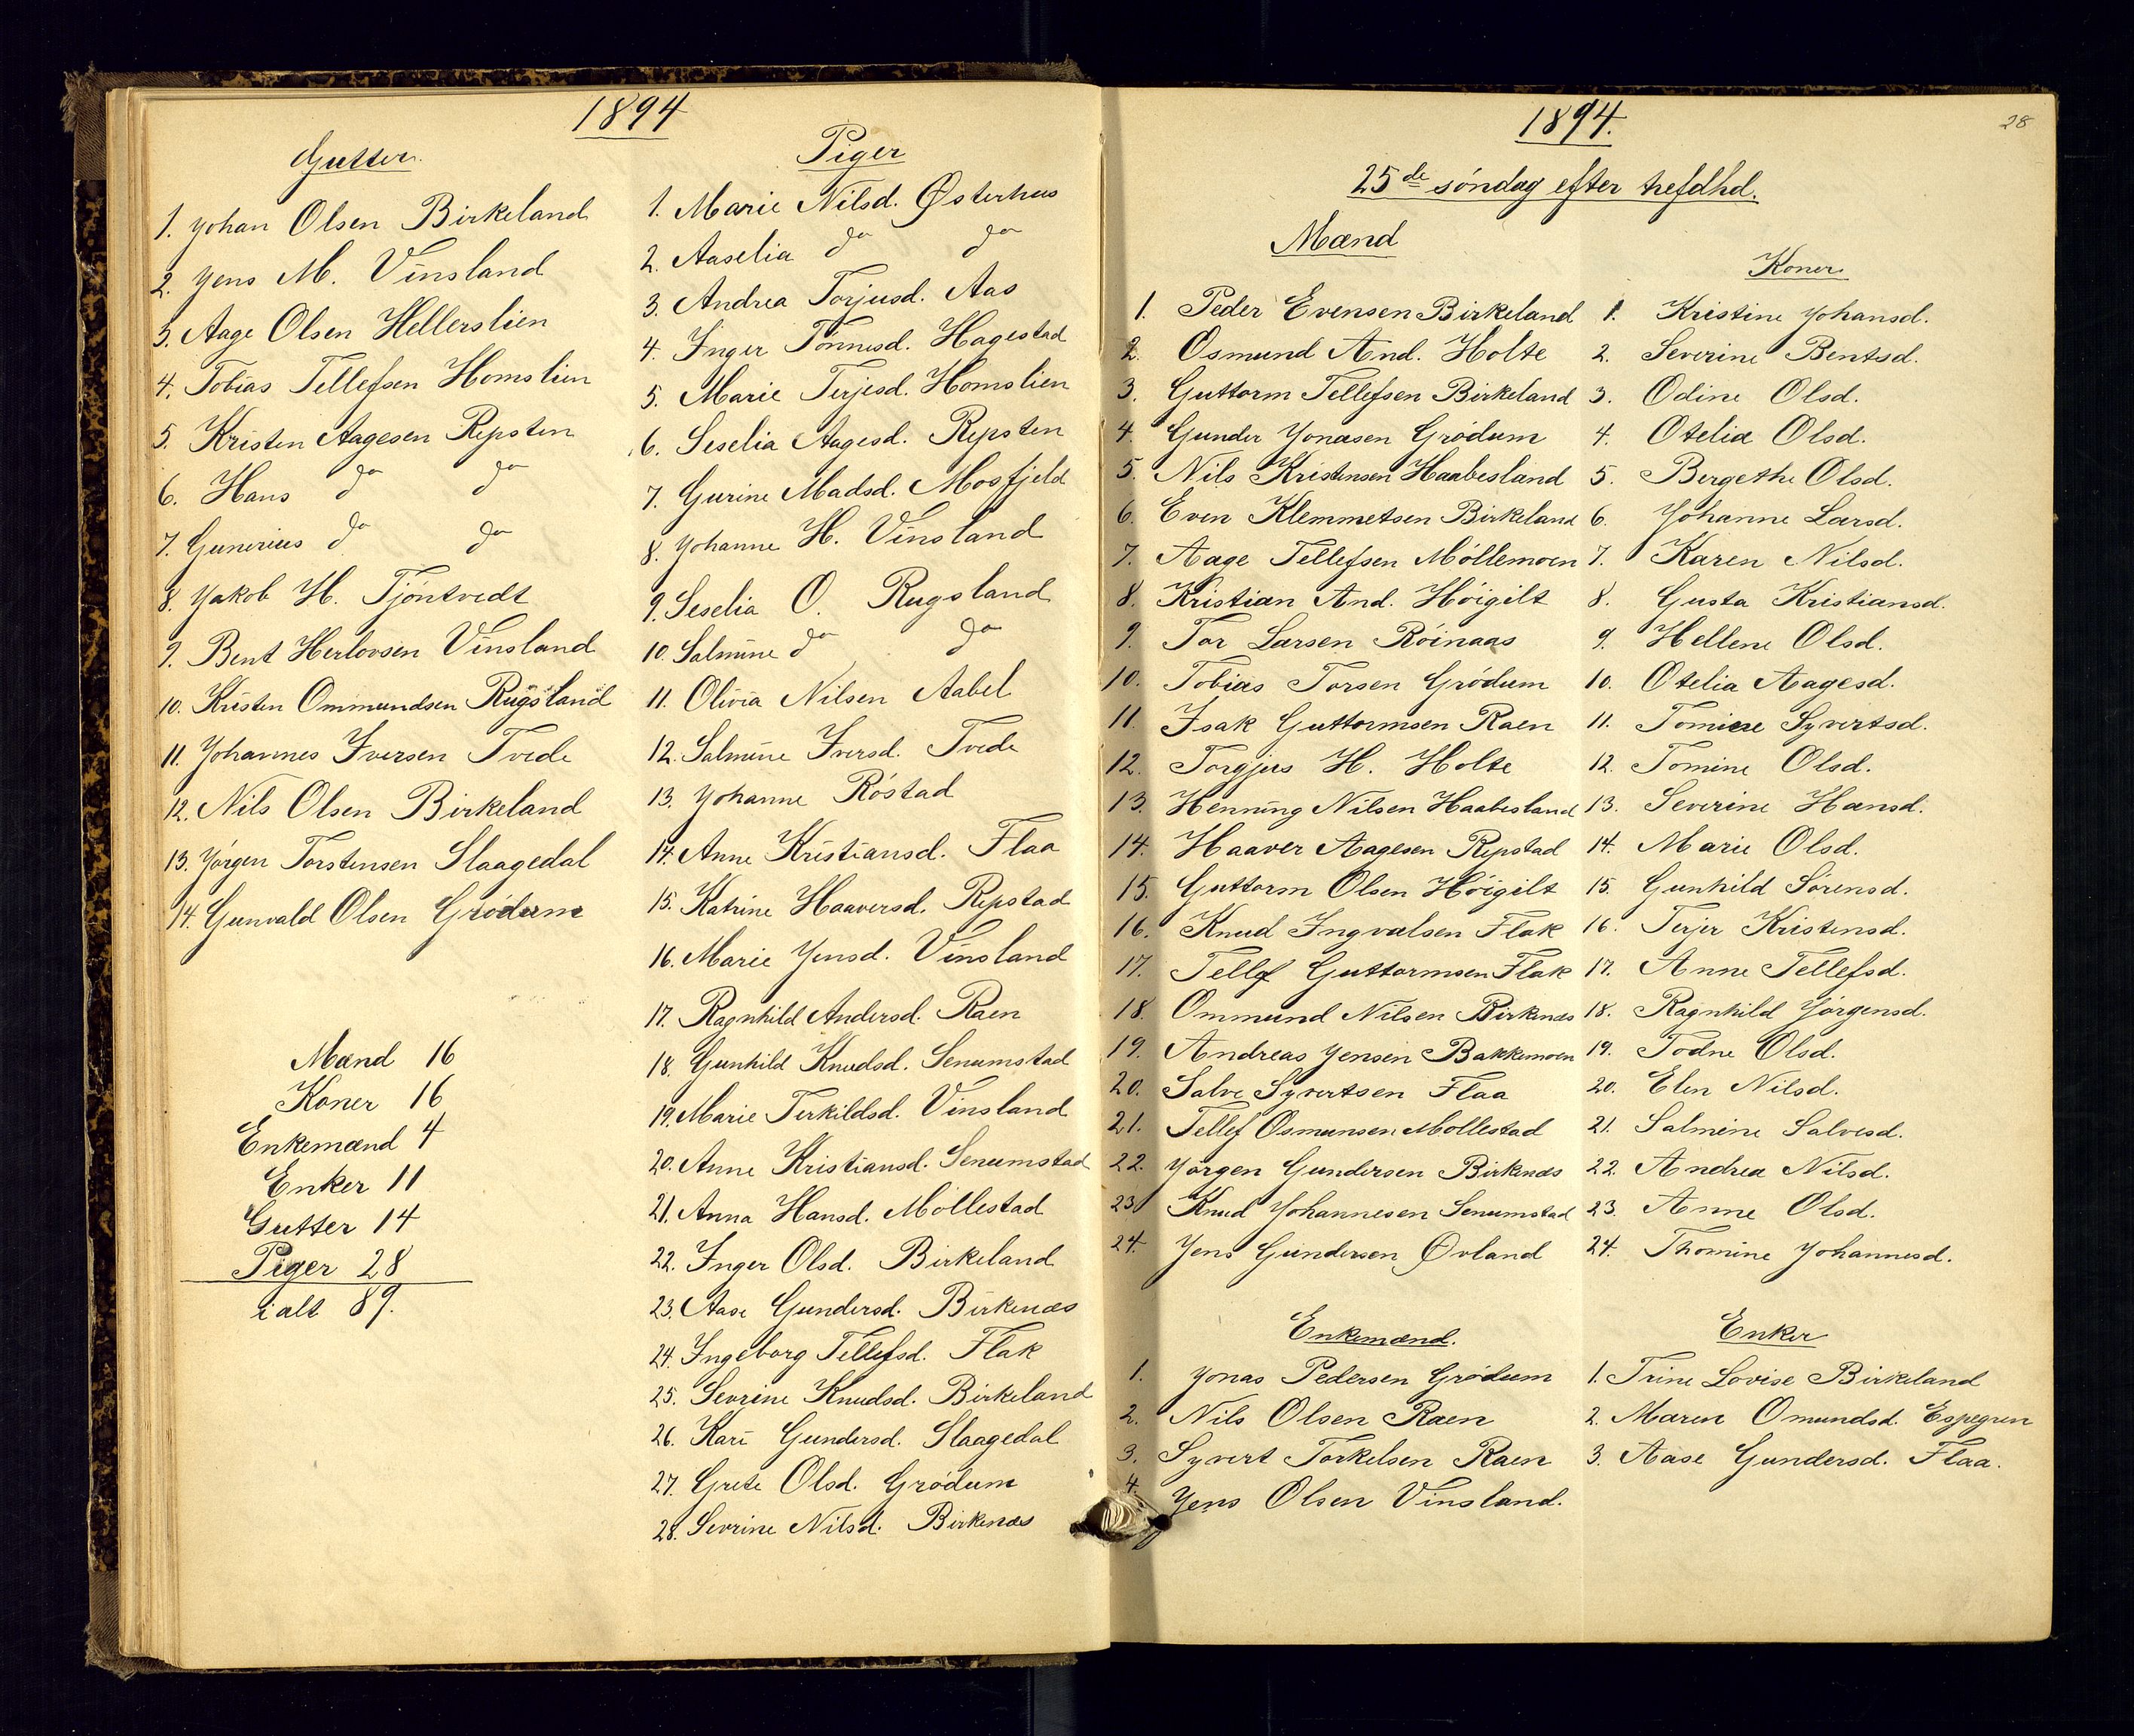 1894
Gutter.
1. Johan Olsen Birkeland
2. Jens M. Vinsland
3. Aage Olsen Hellerslien
4. Tobias Tellefsen Homslien
5. Kristen Aagesen Repsten
6. Hans do do
7. Gunerius do do
8. Jakob H. Tjöntvedt
9. Bent Herlovsen Vinsland
10. Kristen Ommundsen Rugsland
11. Johannes Iversen Tvede
12. Nils Olsen Birkeland
13. Jörgen Torstensen Slaagedal
14. Gunvald Olsen Grödum
Mænd 16
Koner 16
Enkemænd 4
Enker 11
Gutter 14
Piger 28
i alt 89.
Piger
1. Marie Nilsd. Østerhus
2. Aaselia do do
3. Andrea Torjusd. Aas
4. Inger Tönnesd. Hagestad
5. Marie Terjesd. Homslien
6. Seselia Aagesd. Repsten
7. Gurine Madsd. Mosfjeld
8. Johanne H. Vinsland
9. Seselia O. Rugsland
10. Salmine do do
11. Olivia Nilsen Aabel
12. Salmine Iversd. Tvede
13. Johanne Röstad
14. Anne Kristiansd. Flaa
15. Katrine Haaversd. Repstad
16. Marie Jensd. Vinsland
17. Ragnhild Andersd. Raen
18. Gunhild Knudsd. Senumstad
19. Marie Terkildsd. Vinsland
20. Anne Kristiansd. Senumstad
21. Anna Hansd. Möllestad
22. Inger Olsd. Birkeland
23. Aase Gundersd. Birkenæs
24. Ingeborg Tellefsd. Flak
25. Sevrine Knudsd. Birkeland
26. Kari Gundersd. Slaagedal
27. Grete Olsd. Grödum
28. Sevrine Nilsd. Birkenæs
1894.
28
25de söndag efter trefdhd.
Mænd
1. Peder Evensen Birkeland
2. Osmund And. Holte
3. Guttorm Tellefsen Birkeland
4. Gunder Jonasen Grödum
5. Nils Kristensen Haabesland
6. Even Klemmetsen Birkeland
7. Aage Tellefsen Möllemoen
8. Kristian And. Höigilt
9. Tor Larsen Röinaas
10. Tobias Torsen Grödum
11. Isak Guttormsen Raen
12. Torgjus H. Holte
13. Henning Nilsen Haabesland
14. Haaver Aagesen Repstad
15. Guttorm Olsen Höigilt
16. Knud Ingvalsen Flak
17. Tellef Guttormsen Flak
18. Ommund Nilsen Birkenæs
19. Andreas Jensen Bakkemoen
20. Salve Syvertsen Flaa
21. Tellef Osmunsen Mollestad
22. Jörgen Gundersen Birkenæs
23. Knud Johannesen Senumstad
24. Jens Gundersen Øvland
Koner
1. Kristine Johansd.
2. Severine Bentsd.
3. Odine Olsd.
4. Otelia Olsd.
5. Bergethe Olsd.
6. Johanne Larsd.
7. Karen Nilsd.
8. Gusta Kristiansd.
9. Hellene Olsd.
10. Otelia Aagesd.
11. Tomine Syvertsd.
12. Tomine Olsd.
13. Severine Hansd.
14. Marie Olsd.
15. Gunhild Sörensd.
16. Terjer Kristensd.
17. Anne Tellefsd.
18. Ragnhild Jörgensd.
19. Todne Olsd.
20. Elen Nilsd.
21. Salmine Salvesd.
22. Andrea Nilsd.
23. Anne Olsd.
24. Thomine Johannesd.
Enkemænd.
1. Jonas Pedersen Grödum
2. Nils Olsen Raen
3. Syvert Torkelsen Raen
4. Jens Olsen Vinsland.
Enker
1. Trine Lovise Birkeland
2. Maren Omundsd. Espegren
3. Aase Gundersd. Flaa.